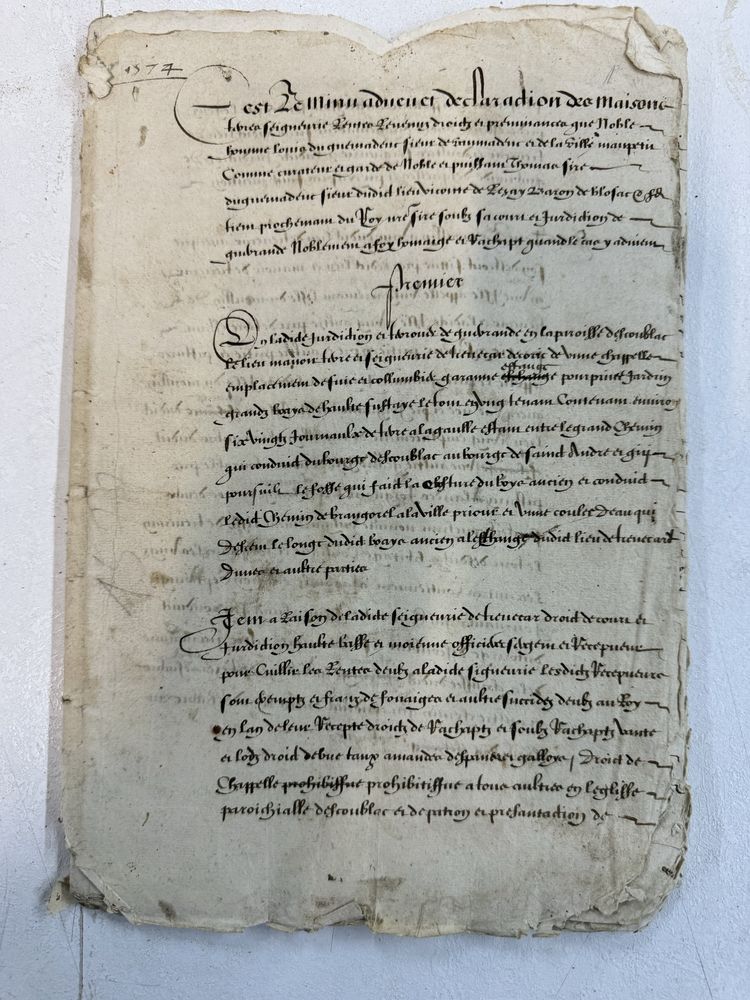 1574
Cest Le Minu adveu et declaraction des maisons
terres seigneurie Rentes Revenu droictz et preminances que Noble
homme louis du guemadeuc sieur de vaumadeuc et de la Ville maupetit
Comme curateur et garde de Noble et puissant Thomas sire
duguemadeuc sieur dudict lieu viconte de Rezay Baron de blosac &
tient prochement du Roy nre sire soubz sa court et Jurdiction de
guerande Noblement a foy homaige et Rachapt quand le cas y advient
Premier
En ladicte Jurdiction et terrouer de guerande en la paroisse descoublac
Le lieu manoir terre et seigneurie de trevecar decoré de une chappelle
emplacement de fuie et collumbier garanne estange pourprins Jardin
grandz boays de haulte fustaye le tout en ung tenant Contenant environ
six vingtz Journaulx de terre a la gaulle estant entre le grand Chemin
qui conduict du bourg descoublac au bourg de sainct Andre et qui
poursuilt le fosse qui faict la closture du boys ancien et conduict
ledict Chemin de brangorel a la ville prioux et une coulee deau qui
Descent le longe dudict boays ancien a lestange dudict lieu de trevecart
Dunes et aultre parties
Item a Raison de ladicte seigneurie de trevecar droict de court et
Jurdiction haulte basse et moienne officiers sergent et Recepveur
pour Cuillir les Rentes deubz a ladicte signeurie lesdictz Recepveurs
sont exemptz et francz de fouaiges et aultre succides deubz au Roy
en lan de leur Recepte droictz de Rachaptz et soubz Rachaptz vante
et lodz droict de taux amandes despaves et galloys / Droict de
Chappelle prohibitifve prohibitifve a tous aultres en leglisse
paroichialle descoublac et de patron et presantaction de